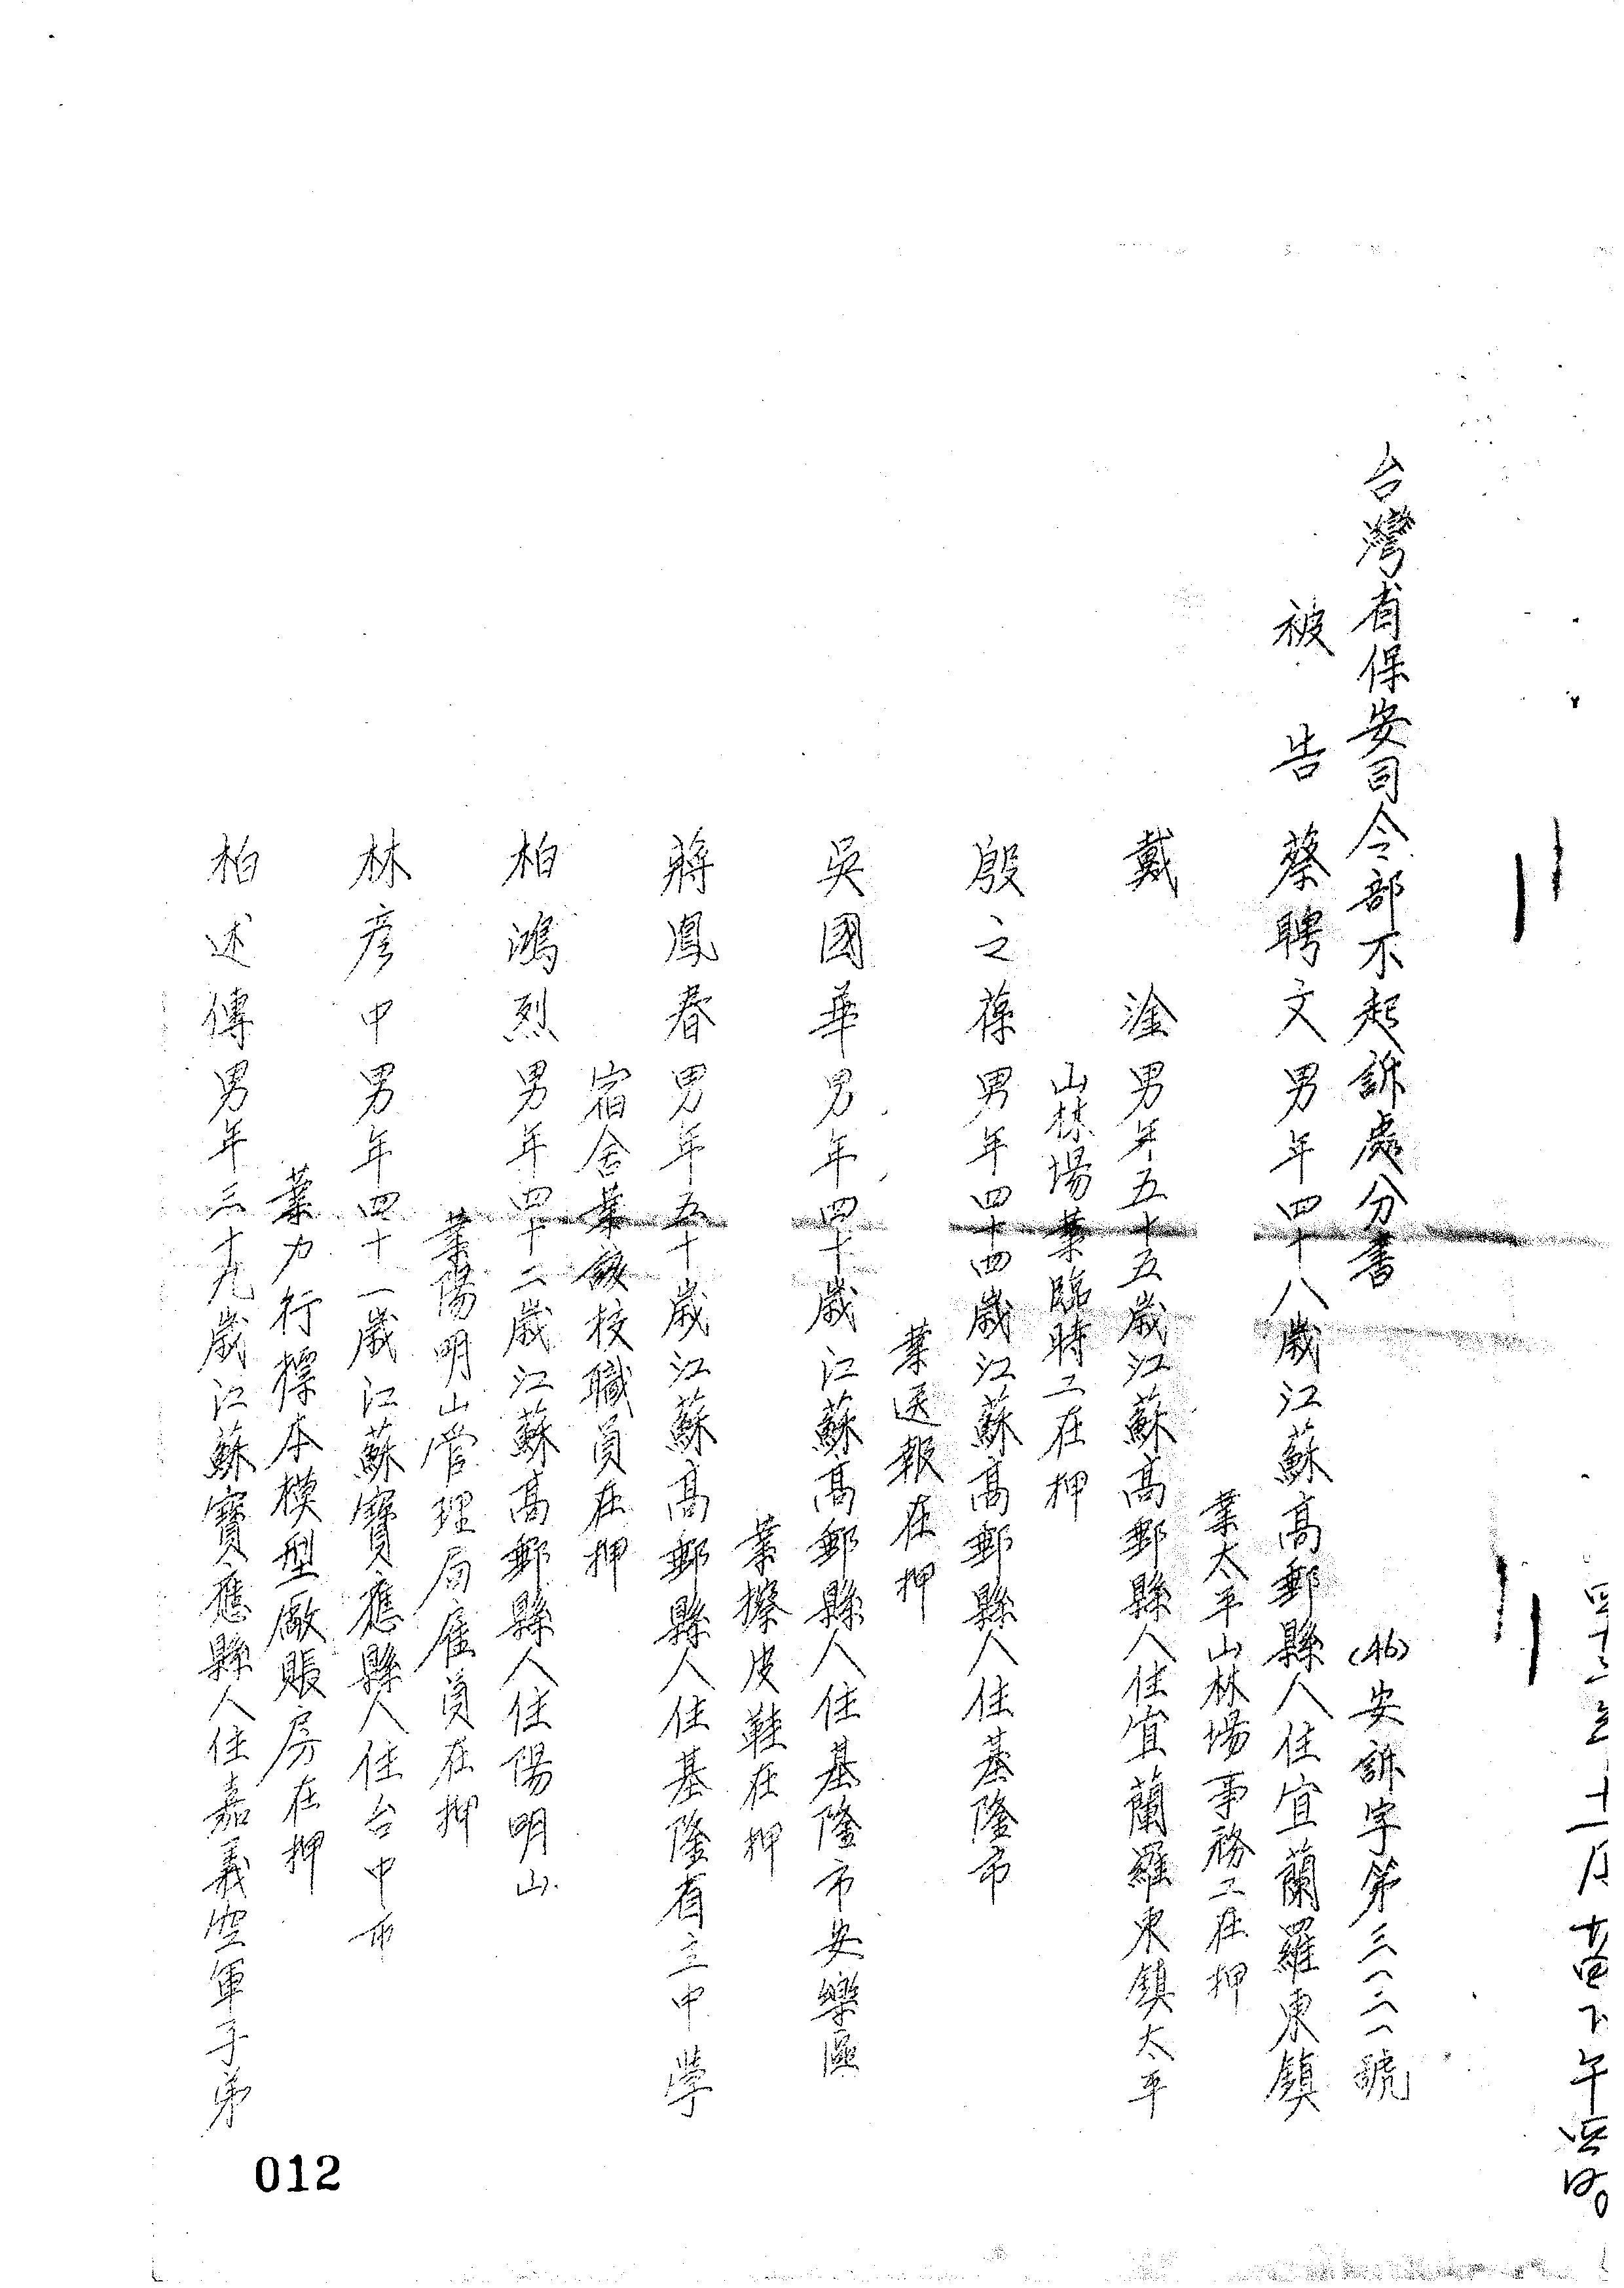 台灣省保安司令部不起訴處分書
(46)安訴字第三一二一號
被告蔡聘文男年四十八歲江蘇高郵縣人住宜蘭羅東鎮
業太平山林場事務工在押
戴淦男年五十五歲江蘇高郵縣人住宜蘭羅東鎮太平
山林場業臨時工在押
殷之葆男年四十四歲江蘇高郵縣人住基隆市
業送報在押
吳國華男年四十歲江蘇高郵縣人住基隆市安樂區
業擦皮鞋在押
蔣鳳春男年五十歲江蘇高郵縣人住基隆省立中學
宿舍業該校職員在押
柏鴻烈男年四十二歲江蘇高郵縣人住陽明山
業陽明山管理局雇員在押
林彥中男年四十一歲江蘇寶應縣人住台中市
業力行標本模型廠賬房在押
柏述傳男年三十九歲江蘇寶應縣人住嘉義空軍子弟
012